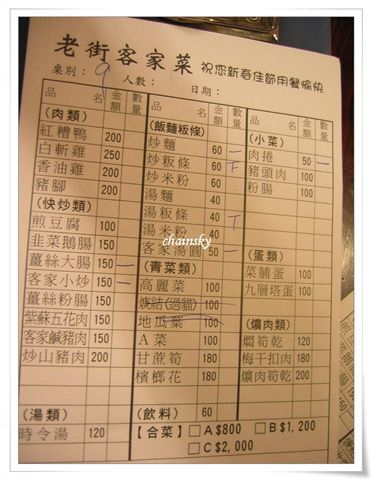 老街客家菜 祝您新春佳節用餐愉快
桌別： 9 人數： 日期：
品名 金額 數量
(肉類)
紅糟鴨 200
白斬雞 250
香油雞 200
豬腳 200
(快炒類)
煎豆腐 100
韭菜鵝腸 150
薑絲大腸 150 一
客家小炒 150 一
薑絲粉腸 150
紫蘇五花肉 150
客家鹹豬肉 150
炒山豬肉 200
(湯類)
時令湯 120
品名 金額 數量
(飯麵粄條)
炒麵 60 一
炒粄條 60 F
炒米粉 60
湯麵 40
湯粄條 40 T
湯米粉 40
客家湯圓 50 一
(青菜類)
高麗菜 100
100
地瓜葉 100
A菜 100
甘蔗筍 180
檳榔花 180
(飲料) 60
品名 金額 數量
(小菜)
肉捲 50 一
豬頭肉 100
粉腸 100
(蛋類)
菜脯蛋 100
九層塔蛋 100
(爌肉類)
燜筍乾 120
梅干扣肉 180
爌肉筍乾 200
【合菜】 □A$800 □B$1,200
□C$2,000
chainsky